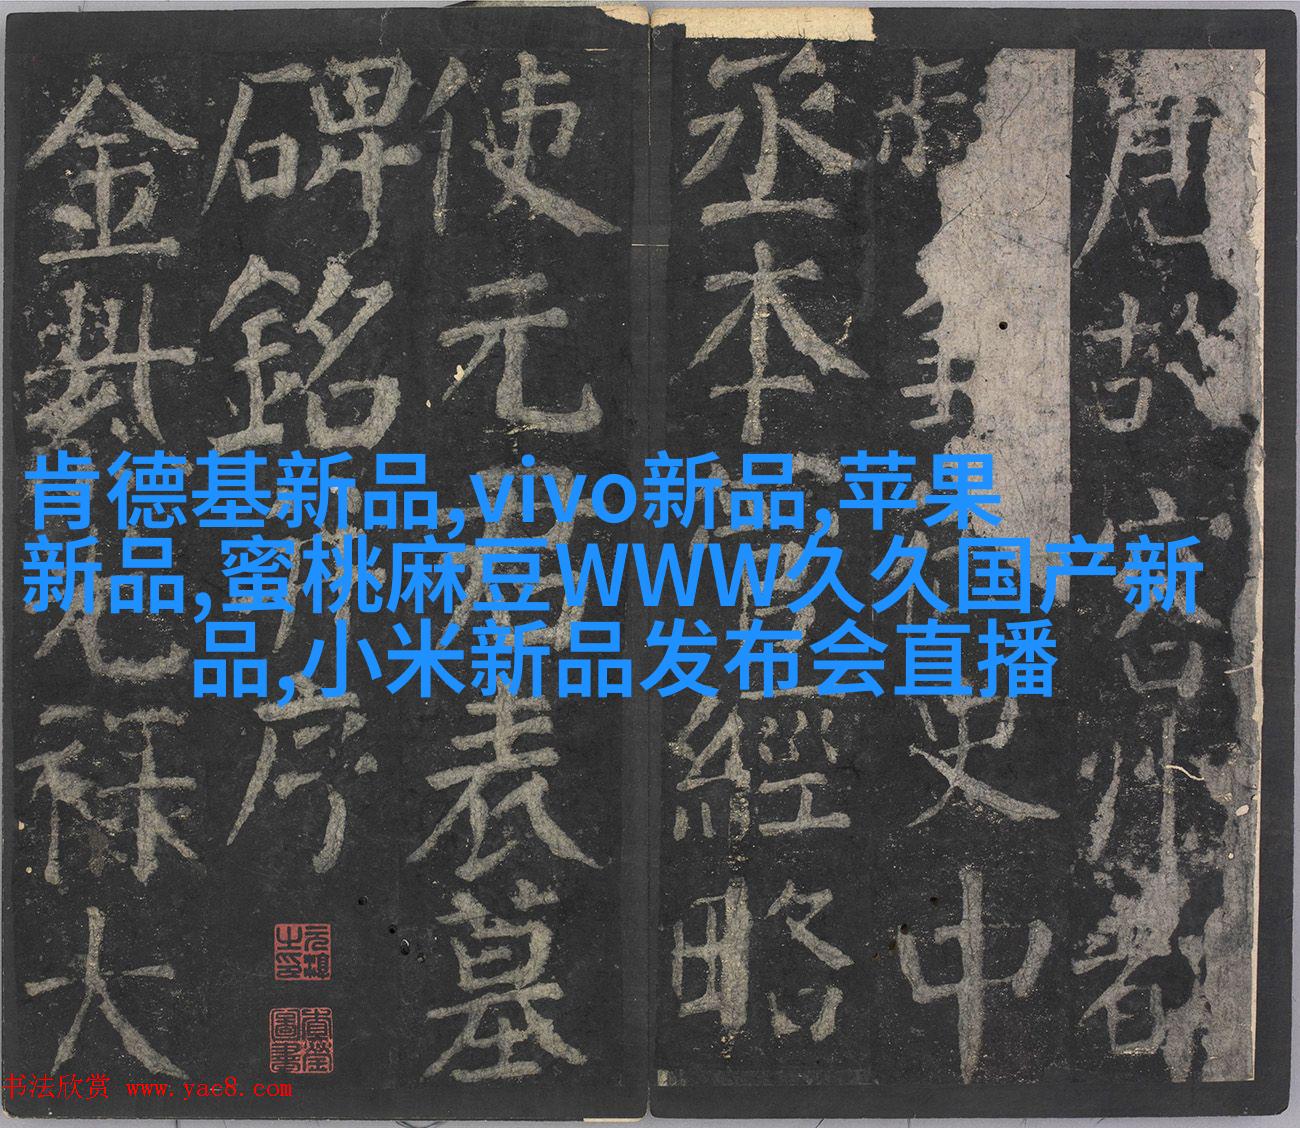 唐故容州都
史中
丞本經略
使元表墓
碑銘序
金紫光祿大
肯德基新品,vivo新品,苹果
新品,蜜桃麻豆WWW久久国产新
品,小米新品发布会直播
书法欣赏 www.yac8.com